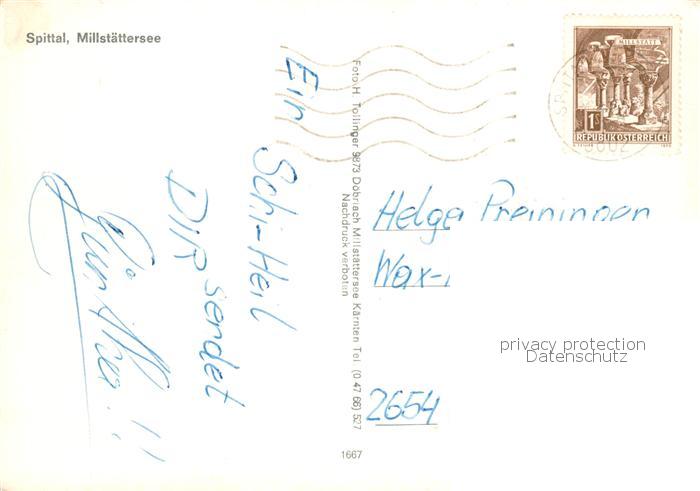 Spittal, Millstättersee
Ein
Schi-Heil
DIR sendet
Günther!!
Foto H. Tollinger 9873 Döbriach Millstättersee Kärnten Tel. (0 47 66) 527
Nachdruck verboten
1667
MILLSTATT
1S
REPUBLIK ÖSTERREICH
Helga
Wax-
2654
privacy protection
Datenschutz